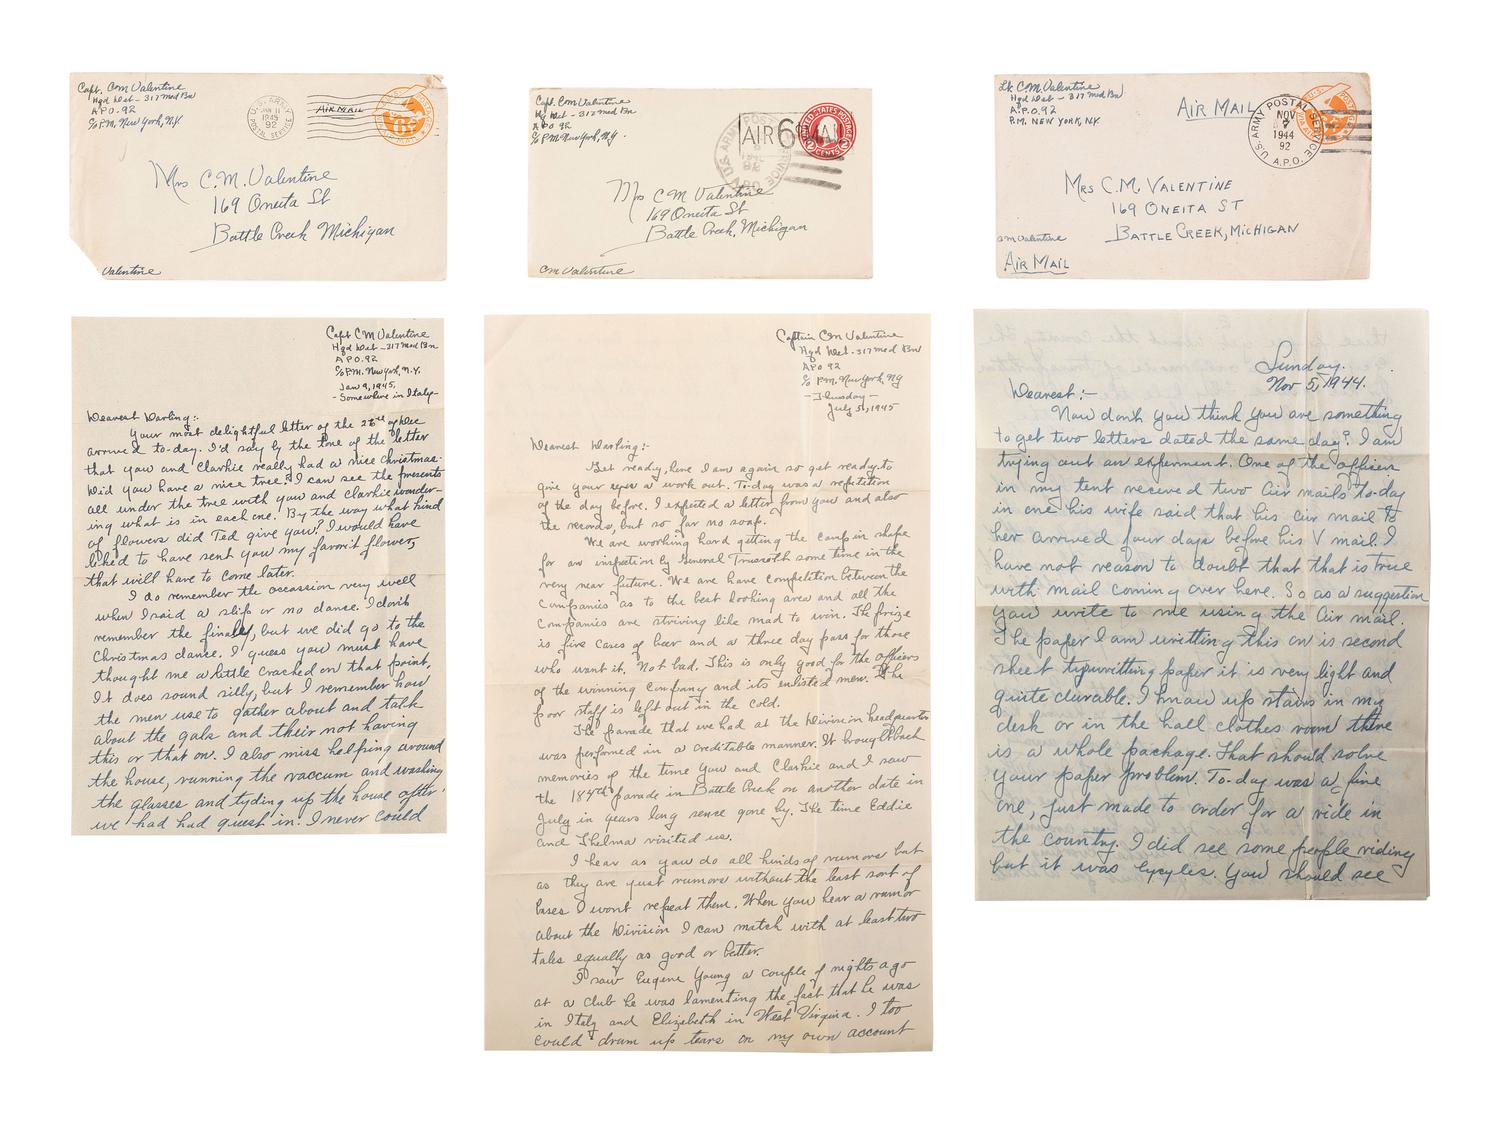 Capt. CM Valentine
Hqd Det - 317 Med Bn
A.P.O. 92
c/o P.M. New York, N.Y.
U.S. ARMY
JAN 11
1945
92
POSTAL SERVICE
AIR MAIL
Mrs C.M. Valentine
169 Oneita St
Battle Creek Michigan
Valentine
Capt. CM Valentine
Hq Det - 317 Med Bn
APO 92
c/o P.M. New York, N.Y.
AIR 6
UNITED STATES POSTAGE
CENTS
Mrs C M Valentine
169 Oneita St
Battle Creek, Michigan
CM Valentine
Lt C M Valentine
Hqd Det - 317 Med Bn
A.P.O. 92
P.M. NEW YORK, N.Y.
AIR MAIL
U.S. ARMY POSTAL SERVICE
NOV
1944
92
A.P.O.
MRS C.M. VALENTINE
169 ONEITA ST
BATTLE CREEK, MICHIGAN
CM Valentine
AIR MAIL
Capt CM Valentine
Hqd Det - 317 Med Bn
A P O. 92
c/o P.M. New York, N.Y.
Jan 9, 1945.
- Somewhere in Italy -
Dearest Darling:-
Your most delightful letter of the 26th of Dec
arrived to-day. I'd say by the tone of the letter
that you and Clarkie really had a nice Christmas.
Did you have a nice tree? I can see the presents
all under the tree with you and Clarkie wonder-
ing what is in each one. By the way what kind
of flowers did Ted give you? I would have
liked to have sent you my favorit flower,
that will have to come later.
I do remember the occassion very well
when I said a slip or no dance. I don't
remember the finally, but we did go to the
Christmas dance. I guess you must have
thought me a little cracked on that point,
It does sound silly, but I remember how
the men use to gather about and talk
about the gals and their not having
this or that on. I also miss helping around
the house, running the vaccum and washing
the glasses and tyding up the house after
we had had guest in. I never could
Captain CM Valentine
Hqd Det - 317 Med Bn
APO 92
c/o P.M. New York, NY
- Thursday -
July 5, 1945
Dearest Darling:-
Get ready, here I am again so get ready to
give your eyes a work out. To-day was a repitition
of the day before. I expected a letter from you and also
the records, but so far no soap.
We are working hard getting the camp in shape
for an inspection by General Truscoth some time in the
very near future. We are have competition between the
companies as to the best looking area and all the
companies are striving like mad to win. The prize
is five cases of beer and a three day pass for those
who want it. Not bad. This is only good for the officers
of the winning company and its enlisted men. The
poor staff is left out in the cold.
The parade that we had at the Division headquarters
was performed in a creditable manner. It brought back
memories of the time you and Clarkie and I saw
the 184th parade in Battle Creek on another date in
July in years long sense gone by. The time Eddie
and Thelma visited us.
I hear as you do all kinds of rumors but
as they are just rumors without the least sort of
bases I wont repeat them. When you hear a rumor
about the Division I can match with at least two
tales equally as good or better.
I saw Eugene Young a couple of nights ago
at a club he was lamenting the fact that he was
in Italy and Elizebeth in West Virginia. I too
could drum up tears on my own account
Sunday.
Nov 5, 1944.
Dearest:-
Now don't you think you are something
to get two letters dated the same day? I am
trying out an experment. One of the officer
in my tent received two Air mails to-day
in one his wife said that his air mail to
her arrived four days before his V mail. I
have not reason to doubt that that is true
with mail coming over here. So as a suggestion
you write to me using the Air mail.
The paper I am writting this on is second
sheet typewritting paper it is very light and
quite durable. I know up stairs in my
desk or in the hall clothes room there
is a whole package. That should solve
your paper problem. To-day was a fine
one, just made to order for a ride in
the country. I did see some people riding
but it was bycyles. You should see